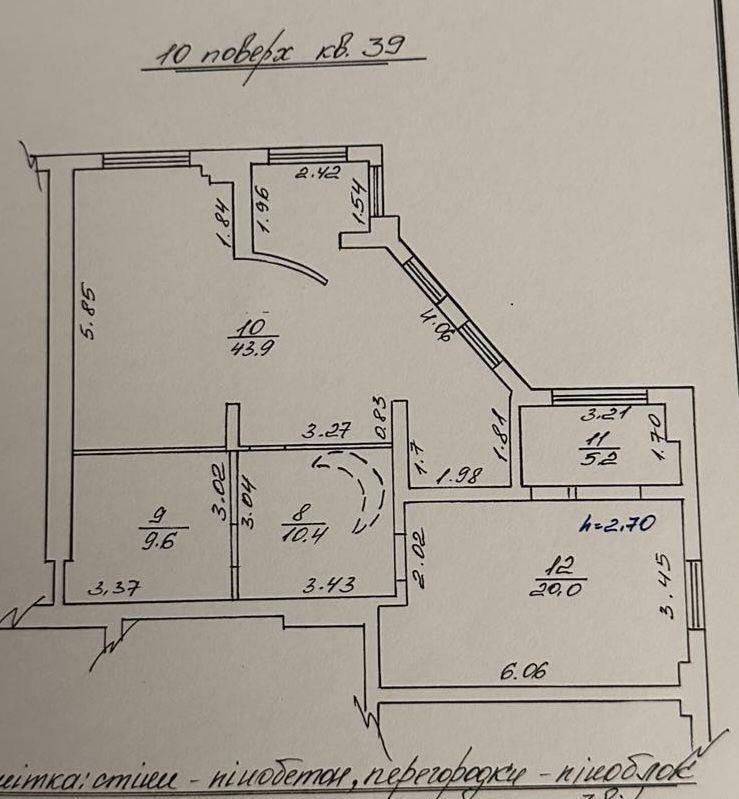 10 поверх кв. 39
2.42
1.84
1.96
1.54
5.85
10
43.9
4.06
3.21
11
5.2
1.70
0.83
3.27
1.7
1.81
1.98
3.02
3.04
9
9.6
8
10.4
2.02
h=2.70
12
20,0
3.45
3,37
3.43
6.06
стіни - пінобетон, перегородки - піноблок